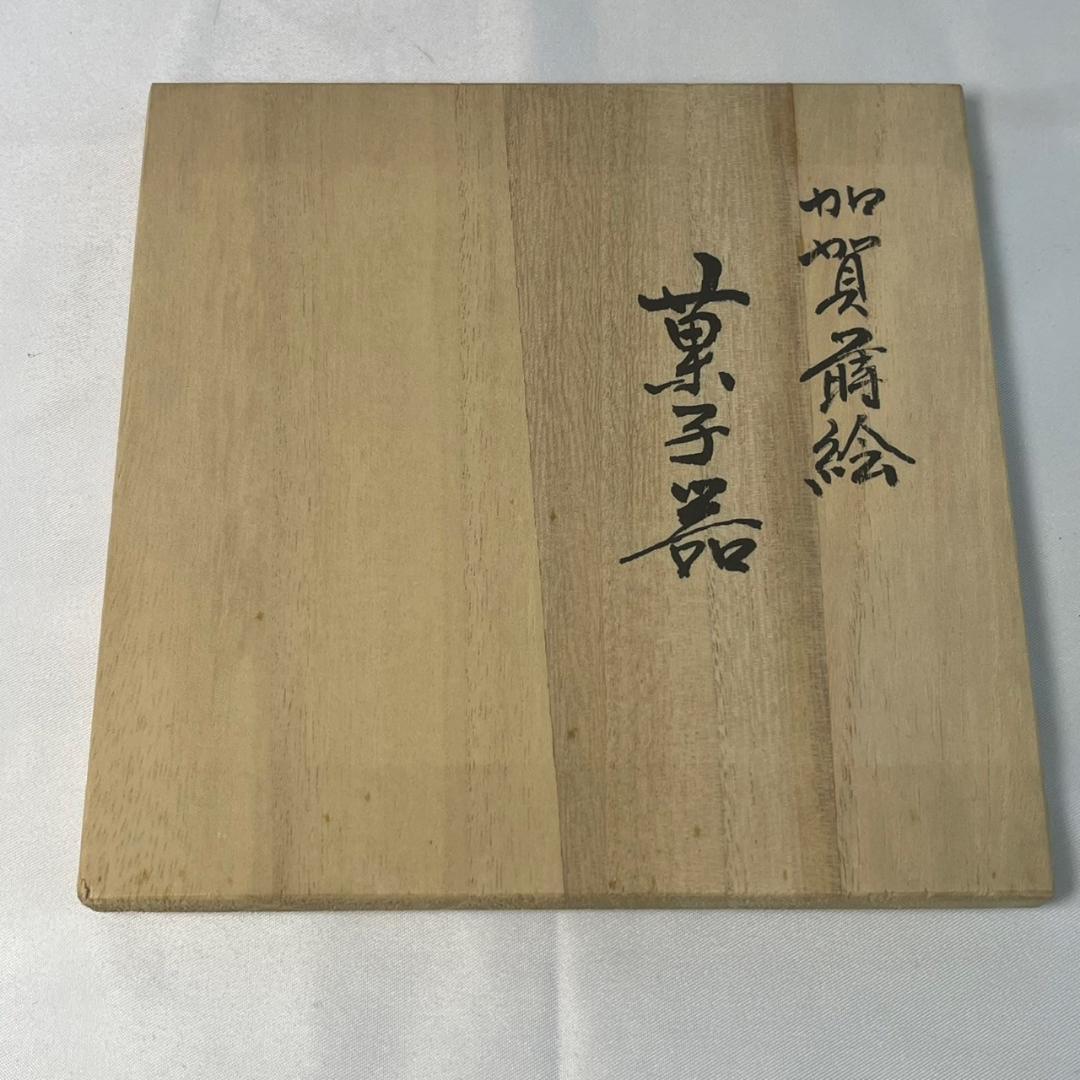 加賀蒔絵
菓子器